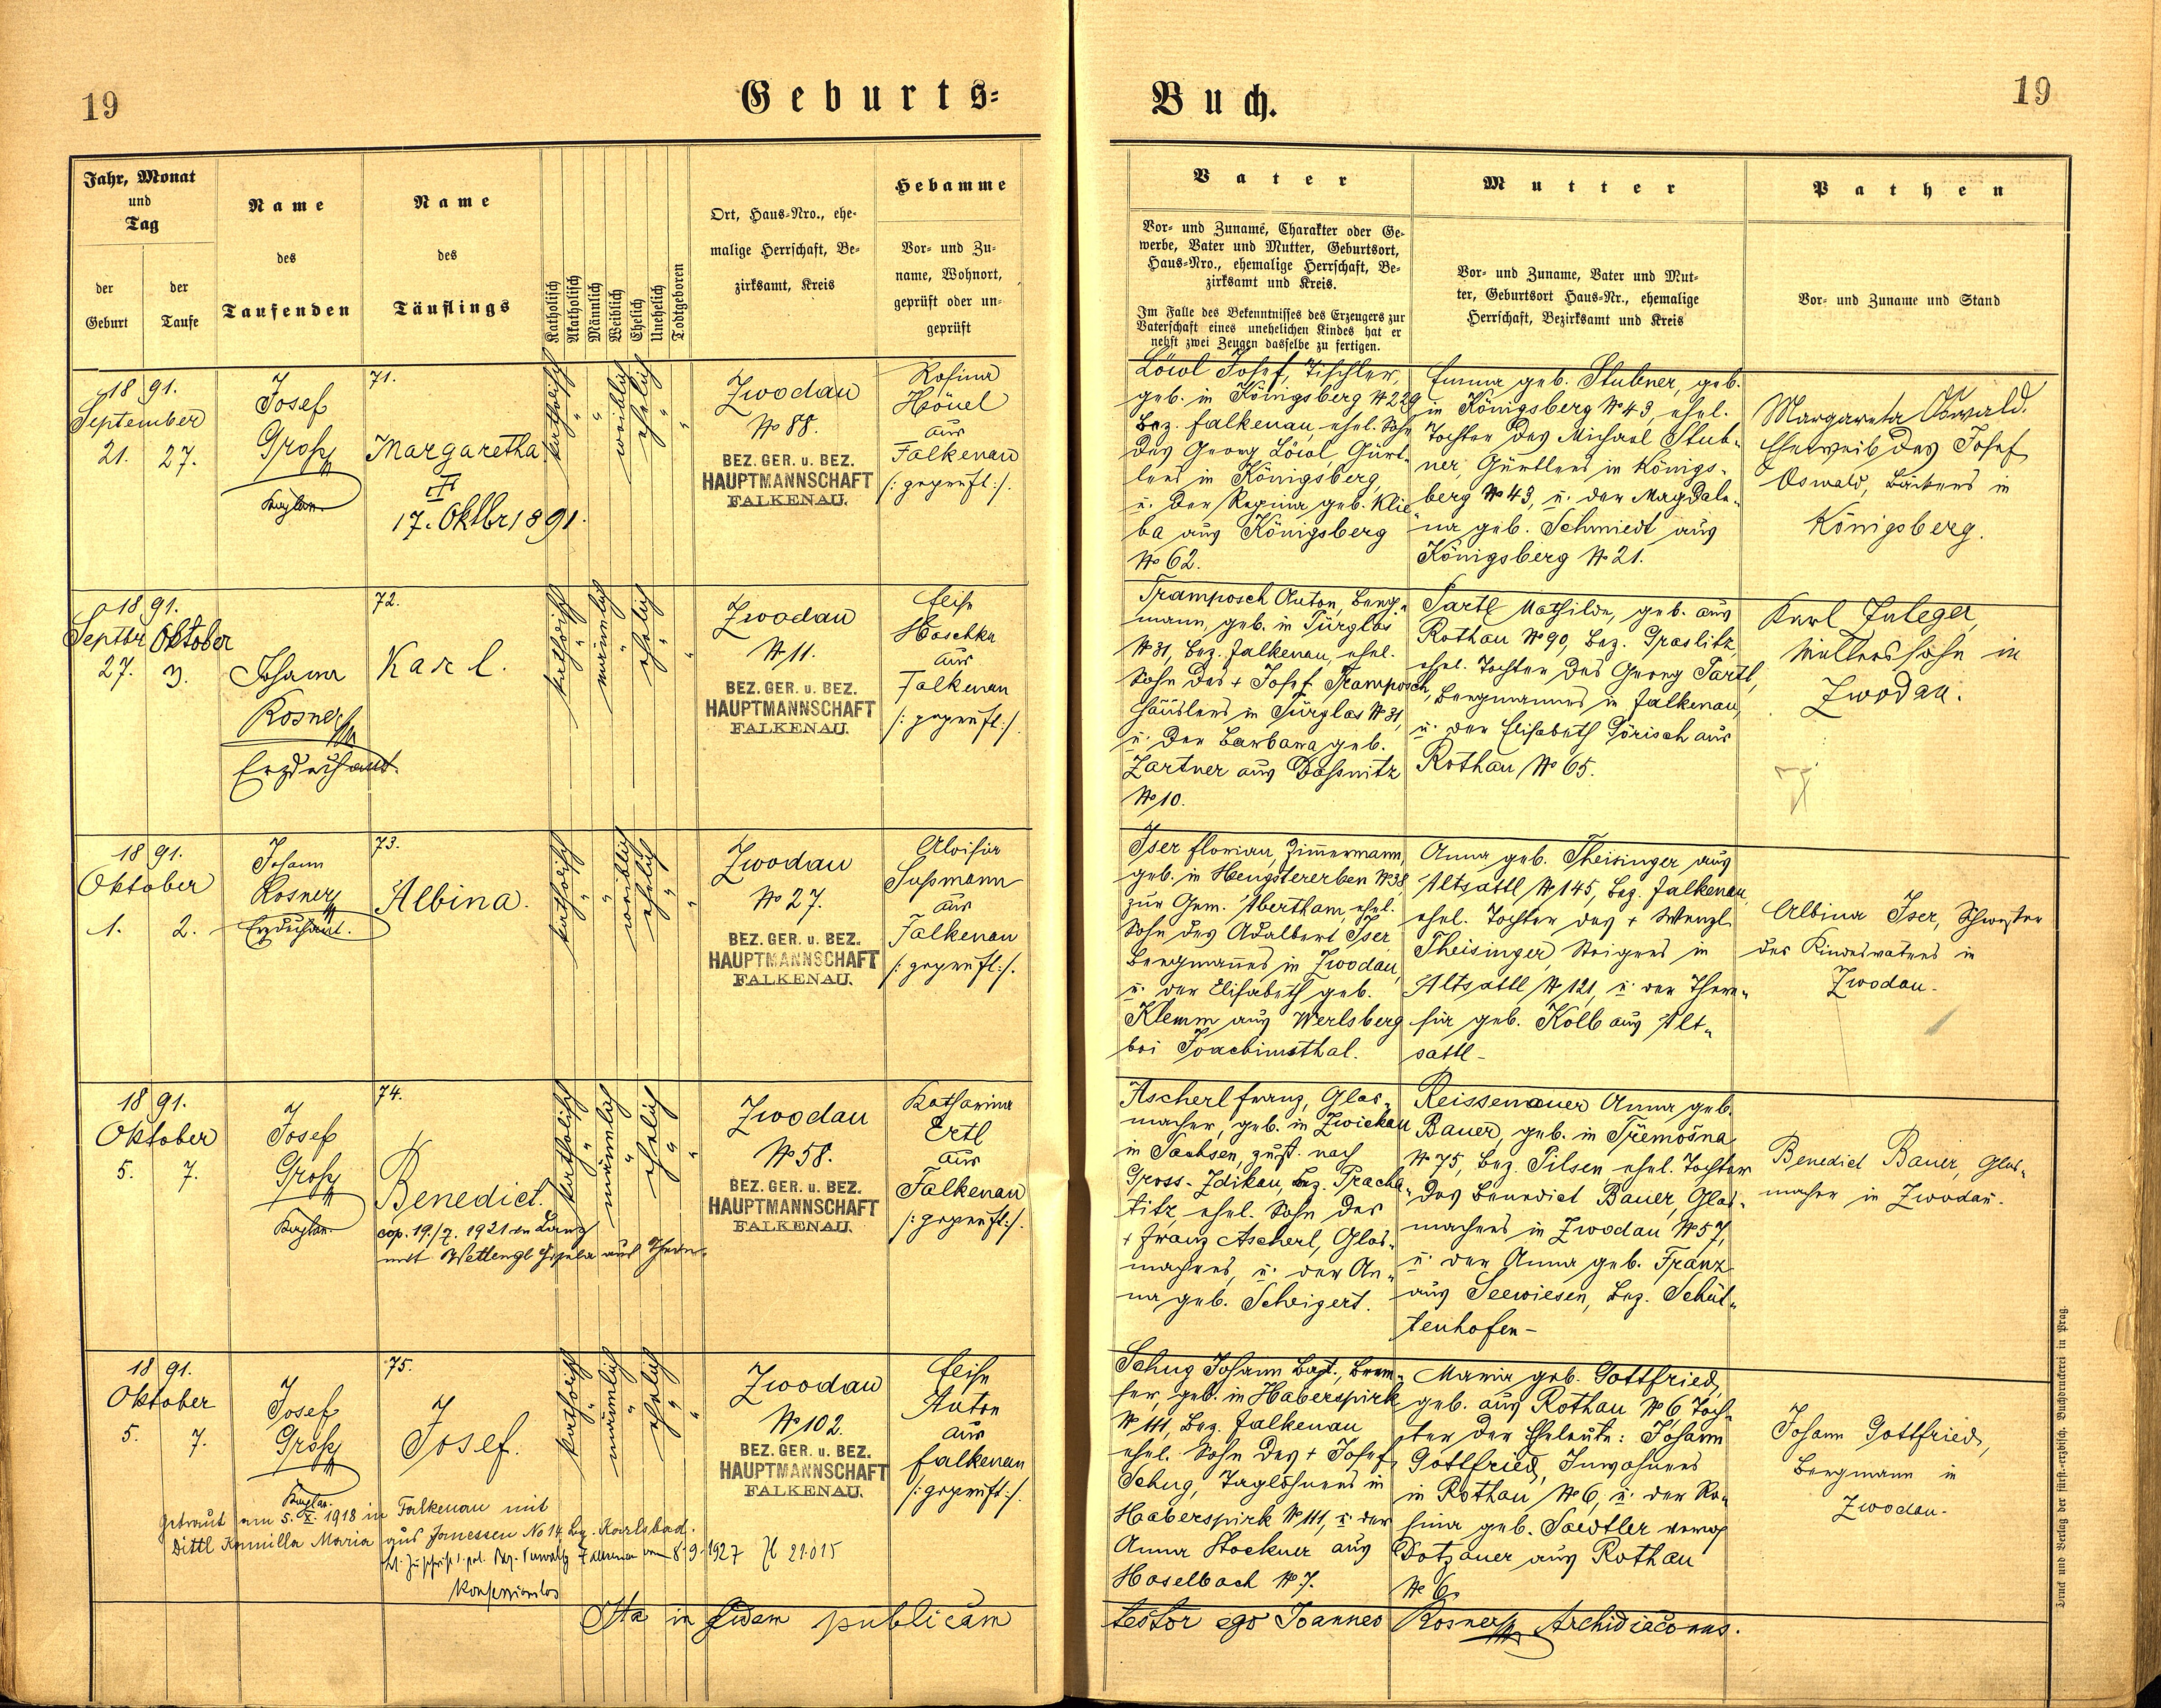 19
Geburts=
Buch.
19
Jahr, Monat
und
Tag
der
Geburt
der
Taufe
Name
des
Taufenden
Name
des
Täuflings
Katholisch
Akatholisch
Männlich
Weiblich
Ehelich
Unehelich
Todtgeboren
Ort, Haus-Nro., ehe-
malige Herrschaft, Be-
zirksamt, Kreis
Hebamme
Vor- und Zu-
name, Wohnort,
geprüft oder un-
geprüft
Vater
Vor- und Zuname, Charakter oder Ge-
werbe, Vater und Mutter, Geburtsort,
Haus-Nro., ehemalige Herrschaft, Be-
zirksamt und Kreis.
Im Falle des Bekenntnisses des Erzeugers zur
Vaterschaft eines unehelichen Kindes hat er
nebst zwei Zeugen dasselbe zu fertigen.
Mutter
Vor- und Zuname, Vater und Mut-
ter, Geburtsort Haus-Nr., ehemalige
Herrschaft, Bezirksamt und Kreis
Pathen
Vor- und Zuname und Stand
1891.
September
21. 27.
Josef
Gross
Kaplan
71.
Margaretha
17. Oktbr 1891.
katholisch
"
"
weiblich
ehelich
"
"
Zwodau
No 88.
BEZ. GER. u. BEZ.
HAUPTMANNSCHAFT
FALKENAU.
Rosina
Höuel
aus
Falkenau
/: geprüft :/.
Löwl Josef, Tischler,
geb. in Königsberg No 229
Bez. Falkenau, ehel. Sohn
des Georg Löwl, Gürt-
lers in Königsberg,
u. der Regina geb. Klie-
ba aus Königsberg
No 62.
Emma geb. Stubner, geb.
in Königsberg No 43, ehel.
Tochter des Michael Stub-
ner, Gürtlers in Königs-
berg No 43, u. der Magdale-
na geb. Schmiedt aus
Königsberg No 21.
Margareta Oswald.
Eheweib des Josef
Oswald, Bäckers in
Königsberg.
1891.
Septbr Oktober
27. 3.
Johann
Rosner
Erzdechant.
72.
Karl.
katholisch
"
männlich
"
ehelich
"
"
Zwodau
No 11.
BEZ. GER. u. BEZ.
HAUPTMANNSCHAFT
FALKENAU.
Elise
Haschka
aus
Falkenau
/: geprüft :/.
Tramposch Anton, Berg-
mann, geb. in Türglas
No 31, Bez. Falkenau, ehel.
Sohn des + Josef Tramposch,
Häuslers in Türglas No 31,
u. der Barbara geb.
Zartner aus Dassnitz
No 10.
Sartl Mathilde, geb. aus
Rothau No 90, Bez. Graslitz,
ehel. Tochter des Georg Sartl,
Bergmannes in Falkenau,
u. der Elisabeth Görisch aus
Rothau No 65.
Karl
Müllerssohn in
Zwodau.
1891.
Oktober
1. 2.
Johann
Rosner
Erzdechant.
73.
Albina.
katholisch
"
"
weiblich
ehelich
"
"
Zwodau
No 27.
BEZ. GER. u. BEZ.
HAUPTMANNSCHAFT
FALKENAU.
Aloisia
Sussmann
aus
Falkenau
/: geprüft :/.
Iser Florian, Zimmermann,
geb. in Hengstererben No 38
zur Gem. Abertham, ehel.
Sohn des Adalbert Iser
Bergmannes in Zwodau,
u. der Elisabeth geb.
Klemm aus Werlsberg
bei Joachimsthal.
Anna geb. Theisinger aus
Altsattl No 145, Bez. Falkenau,
ehel. Tochter des + Wenzl
Theisinger, Steigers in
Altsattl No 121, u. der There-
sia geb. Kolb aus Alt-
sattl -
Albina Iser, Schwester
des Kindesvaters in
Zwodau.
1891.
Oktober
5. 7.
Josef
Gross
Kaplan
74.
Benedict.
cop. 19./7. 1921 in Lanz
mit Wettengl Gisela aus
katholisch
"
männlich
"
ehelich
"
"
Zwodau
No 58.
BEZ. GER. u. BEZ.
HAUPTMANNSCHAFT
FALKENAU.
Katharina
Ertl
aus
Falkenau
/: geprüft :/.
Ascherl Franz, Glas-
macher, geb. in Zwickau
in Sachsen, zust. nach
Gross-Zdikau, Bez. Pracha-
titz, ehel. Sohn des
+ Franz Ascherl, Glas-
machers, u. der An-
na geb. Scheigert.
Reissenauer Anna geb.
Bauer, geb. in Třemošna
No 75, Bez. Pilsen, ehel. Tochter
des Benedict Bauer, Glas-
machers in Zwodau No 57,
u. der Anna geb. Franz
aus Seewiesen, Bez. Schüt-
tenhofen -
Benedict Bauer, Glas-
macher in Zwodau.
1891.
Oktober
5. 7.
Josef
Gross
Kaplan.
75.
Josef.
katholisch
"
männlich
"
ehelich
"
"
Zwodau
No 102.
BEZ. GER. u. BEZ.
HAUPTMANNSCHAFT
FALKENAU.
Elise
Anton
aus
Falkenau
/: geprüft :/.
Schug Johann Bapt.,
geb. in Haberspirk
No 111, Bez. Falkenau
ehel. Sohn des + Josef
Schug, Taglöhners in
Haberspirk No 111, u. der
Anna Stockner aus
Haselbach No 7.
Maria geb. Gottfried,
geb. aus Rothau No 6, Toch-
ter der Eheleute: Johann
Gottfried, Inwohners
in Rothau No 6, u. der Ro-
sina geb. Saedtler
Dotzauer aus Rothau
No 6.
Johann Gottfried,
Bergmann in
Zwodau.
Getraut am 5. X. 1918 in Falkenau mit
Dittl Kamilla Maria aus Janessen No 14 Bz. Karlsbad.
lt. Zuschrift d. pol. Bez. Verwaltg Falkenau vom 8-9-1927 Zl 21015
konfessionslos
Ita in fidem publicam
testor ego Joannes Rosner Archidiaconus.
Druck und Verlag der fürst-erzbisch. Buchdruckerei in Prag.